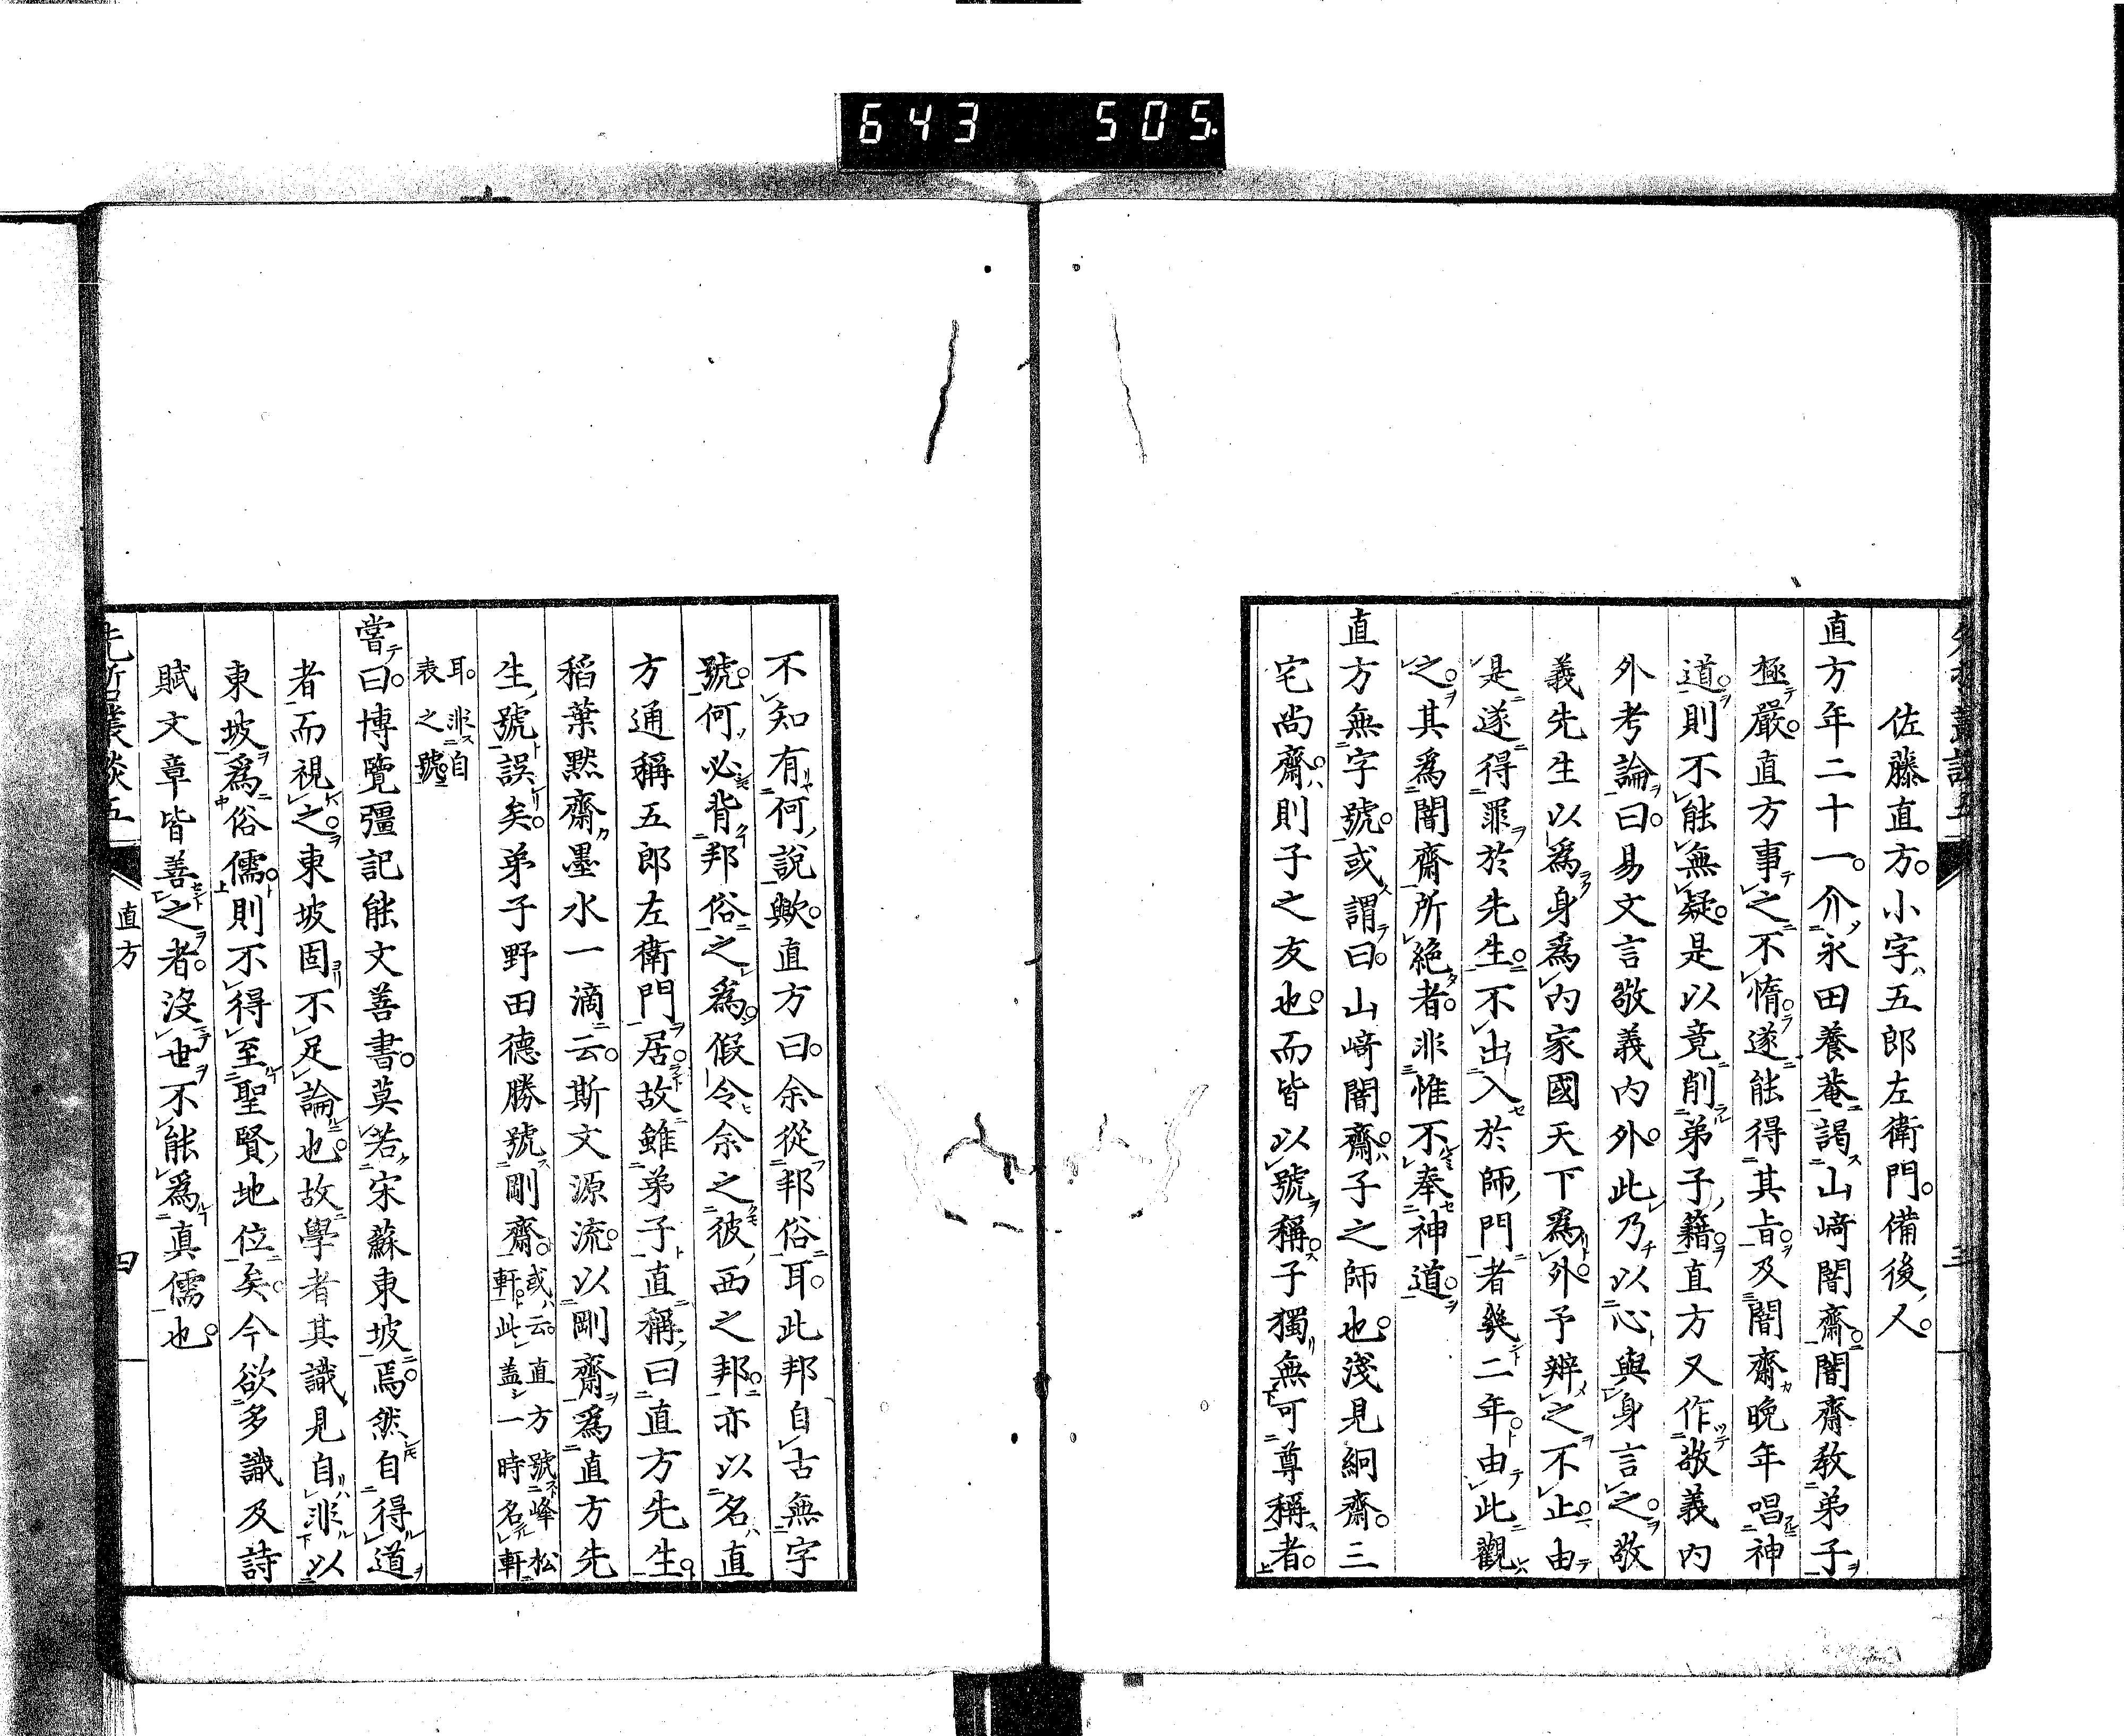 643 505
佐藤直方。小字五郎左衛門。備後人。
直方年二十一。介永田養菴謁山﨑闇齋。闇齋教弟子
極嚴。直方事之不惰。遂能得其旨。及闇齋晚年唱神
道。則不能無疑。是以竟削弟子籍。直方又作敬義內
外考論曰。易文言敬義內外。此乃以心與身言之。敬
義先生以爲身爲內家國天下爲外。予辨之不止。由
是遂得罪於先生。不出入於師門者幾二年。由此觀
之。其爲闇齋所絕者。非惟不奉神道。
直方無字號。或謂曰。山﨑闇齋。子之師也。淺見絅齋。三
宅尚齋。則子之友也。而皆以號稱。子獨無可尊稱者。
不知有何說歟。直方曰。余從邦俗耳。此邦自古無字
號。何必背邦俗之爲。假令余之彼西之邦。亦以名直
方通稱五郎左衛門居。故雖弟子直稱曰直方先生。
稻葉默齋墨水一滴云。斯文源流。以剛齋爲直方先
生號誤矣。弟子野田德勝號剛齋。或云。直方號峰松
軒。此蓋一時名軒
耳。非自
表之號。
嘗曰。博覽彊記能文善書。莫若宋蘇東坡焉。然自得道
者而視之。東坡固不足論也。故學者其識見自非以
東坡爲俗儒。則不得至聖賢地位矣。今欲多識及詩
賦文章皆善之者。沒世不能爲真儒也。
先哲叢談五
直方
四